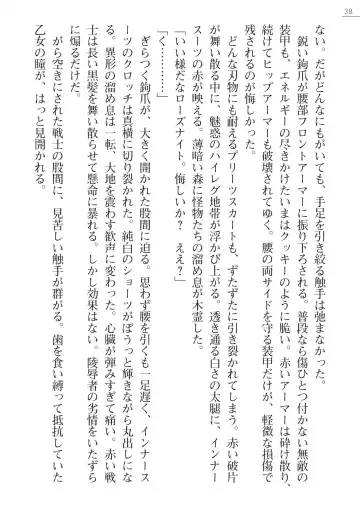 38
ない。だがどんなにもがいても、手足を引き絞る触手は弛まなかった。
鋭い鉤爪が腰部フロントアーマーに振り下ろされる。普段なら傷ひとつ付かない無敵の
装甲も、エネルギーの尽きかけたいまはクッキーのように脆い。赤いアーマーは砕け散り、
続けてヒップアーマーも破壊されてゆく。腰の両サイドを守る装甲だけが、軽微な損傷で
残されるのが悔しかった。
どんな刃物にも耐えるプリーツスカートも、ずたずたに引き裂かれてしまう。赤い破片
が舞い散る中に、魅惑のハイレグ地帯が浮かび上がる。透き通る白さの太腿に、インナー
スーツの赤が映える。薄暗い森に怪物たちの溜め息が木霊した。
「いい様だなローズナイト。悔しいか？　ええ？」
「く……」
ぎらつく鉤爪が、大きく開かれた股間に迫る。思わず腰を引くも一足遅く、インナース
ーツのクロッチは真横に切り裂かれた。純白のショーツがぼうっと輝きながら丸出しにな
る。異形の溜め息は一転、大地を震わす歓声に変わった。心臓が弾みすぎて痛い。赤い戦
士は長い黒髪を舞い散らせて懸命に暴れる。しかし効果はない。陵辱者の劣情をいたずら
に煽るだけだ。
がら空きにされた戦士の股間に、見苦しい触手が群がる。歯を食い縛って抵抗していた
乙女の瞳が、はっと見開かれる。